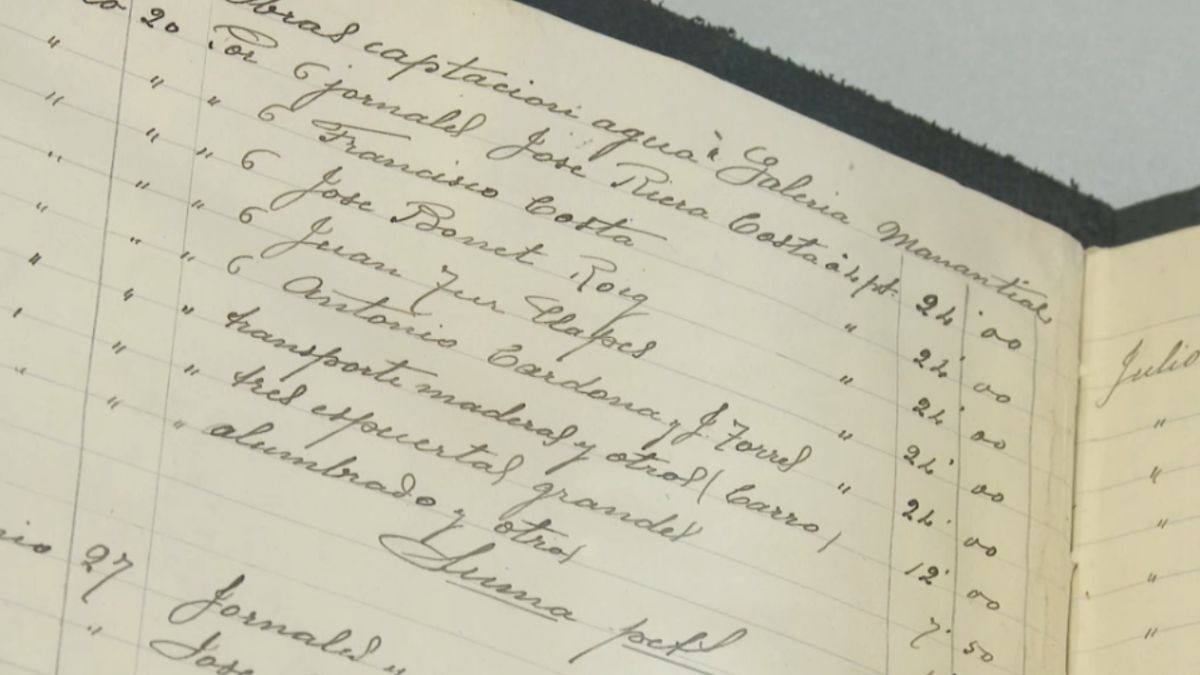 20 Obras captacion agua à Galeria Manantial
" " Por 6 jornales Jose Riera Costa à 4 pt. 24'00
" " " 6 Francisco Costa " 24'00
" " " 6 Jose Bonet Roig " 24'00
" " " 6 Juan Tur Llapes " 24'00
" " " 6 Antonio Cardona y J. Torres " 24'00
" " " transporte maderas y otros (Carro) 12'00
" " " tres espuertas grandes 7'50
" " " alumbrado y otros
Suma ptas
27 Jornales y
" Jose
Julio
"
"
"
"
"